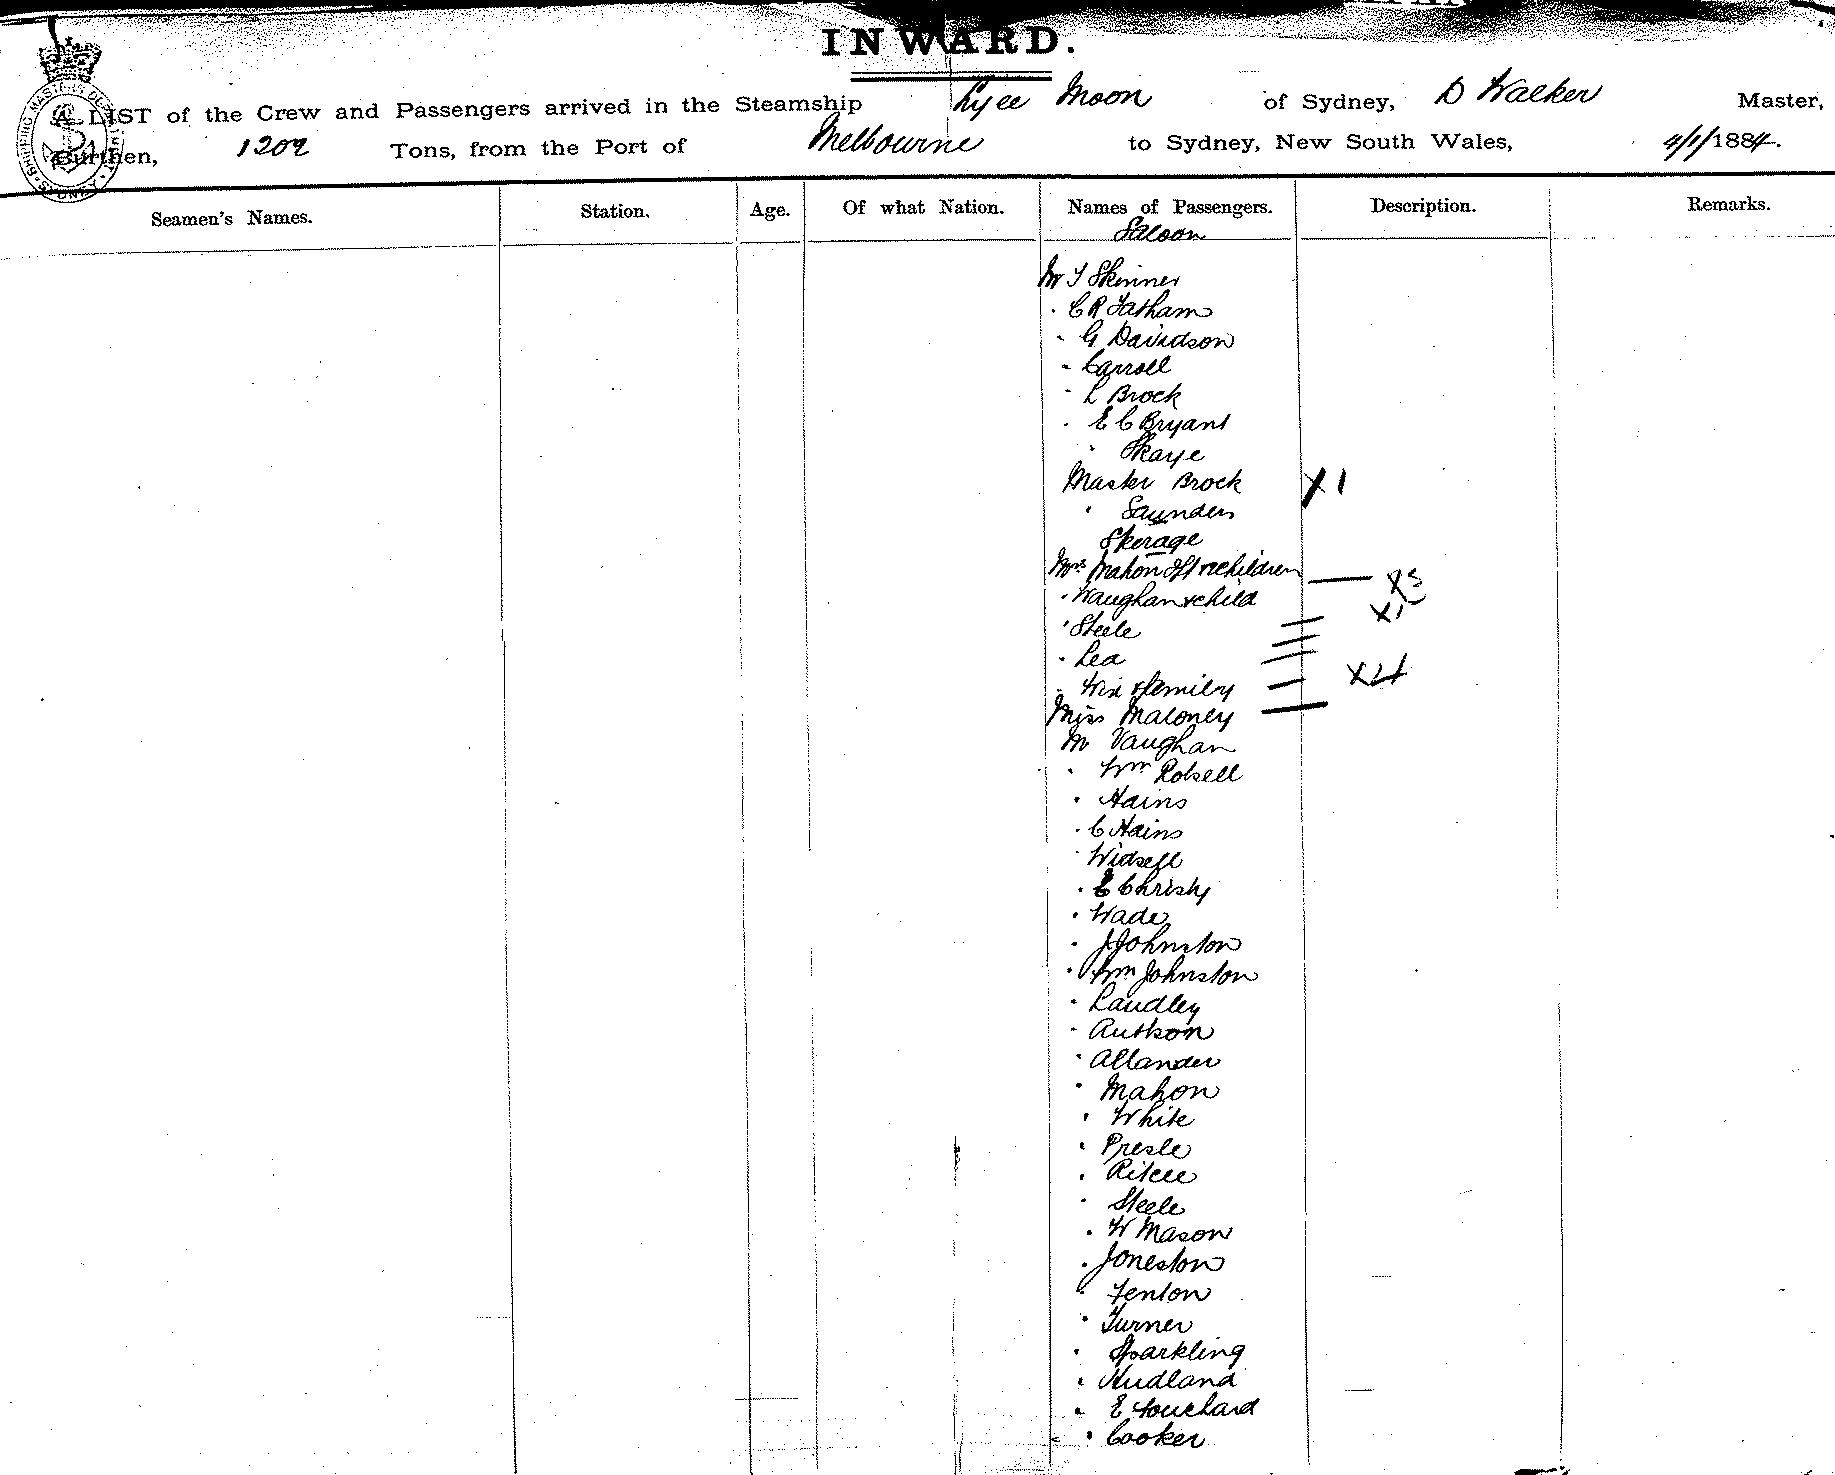 INWARD.
A LIST of the Crew and Passengers arrived in the Steamship Lyee Moon of Sydney, D Walker Master,
Burthen, 1202 Tons, from the Port of Melbourne to Sydney, New South Wales, 4/1/1884.
Seamen's Names. Station. Age. Of what Nation. Names of Passengers. Description. Remarks.
Saloon
Mr T Skinner
" C R Tatham
" G Davidson
" Carroll
" L Brock
" E C Bryant
" Skaye
Master Brock X 1
" Saunders
Sterage
Mrs Mahon & children X 5
" Vaughan & child X 1
" Steele
" Lea
" & family X 4
Miss Maloney
Mr Vaughan
" Wm Robsell
" Hains
" C Hains
" Widsell
" E Christy
" Wade
" J Johnston
" Wm Johnston
" Laudley
" Autkson
" Allander
" Mahon
" White
" Presle
" Ritcee
" Steele
" W Mason
" Joneston
" Fenton
" Turner
" Sparkling
" Hudland
" E Touchard
" Cooker